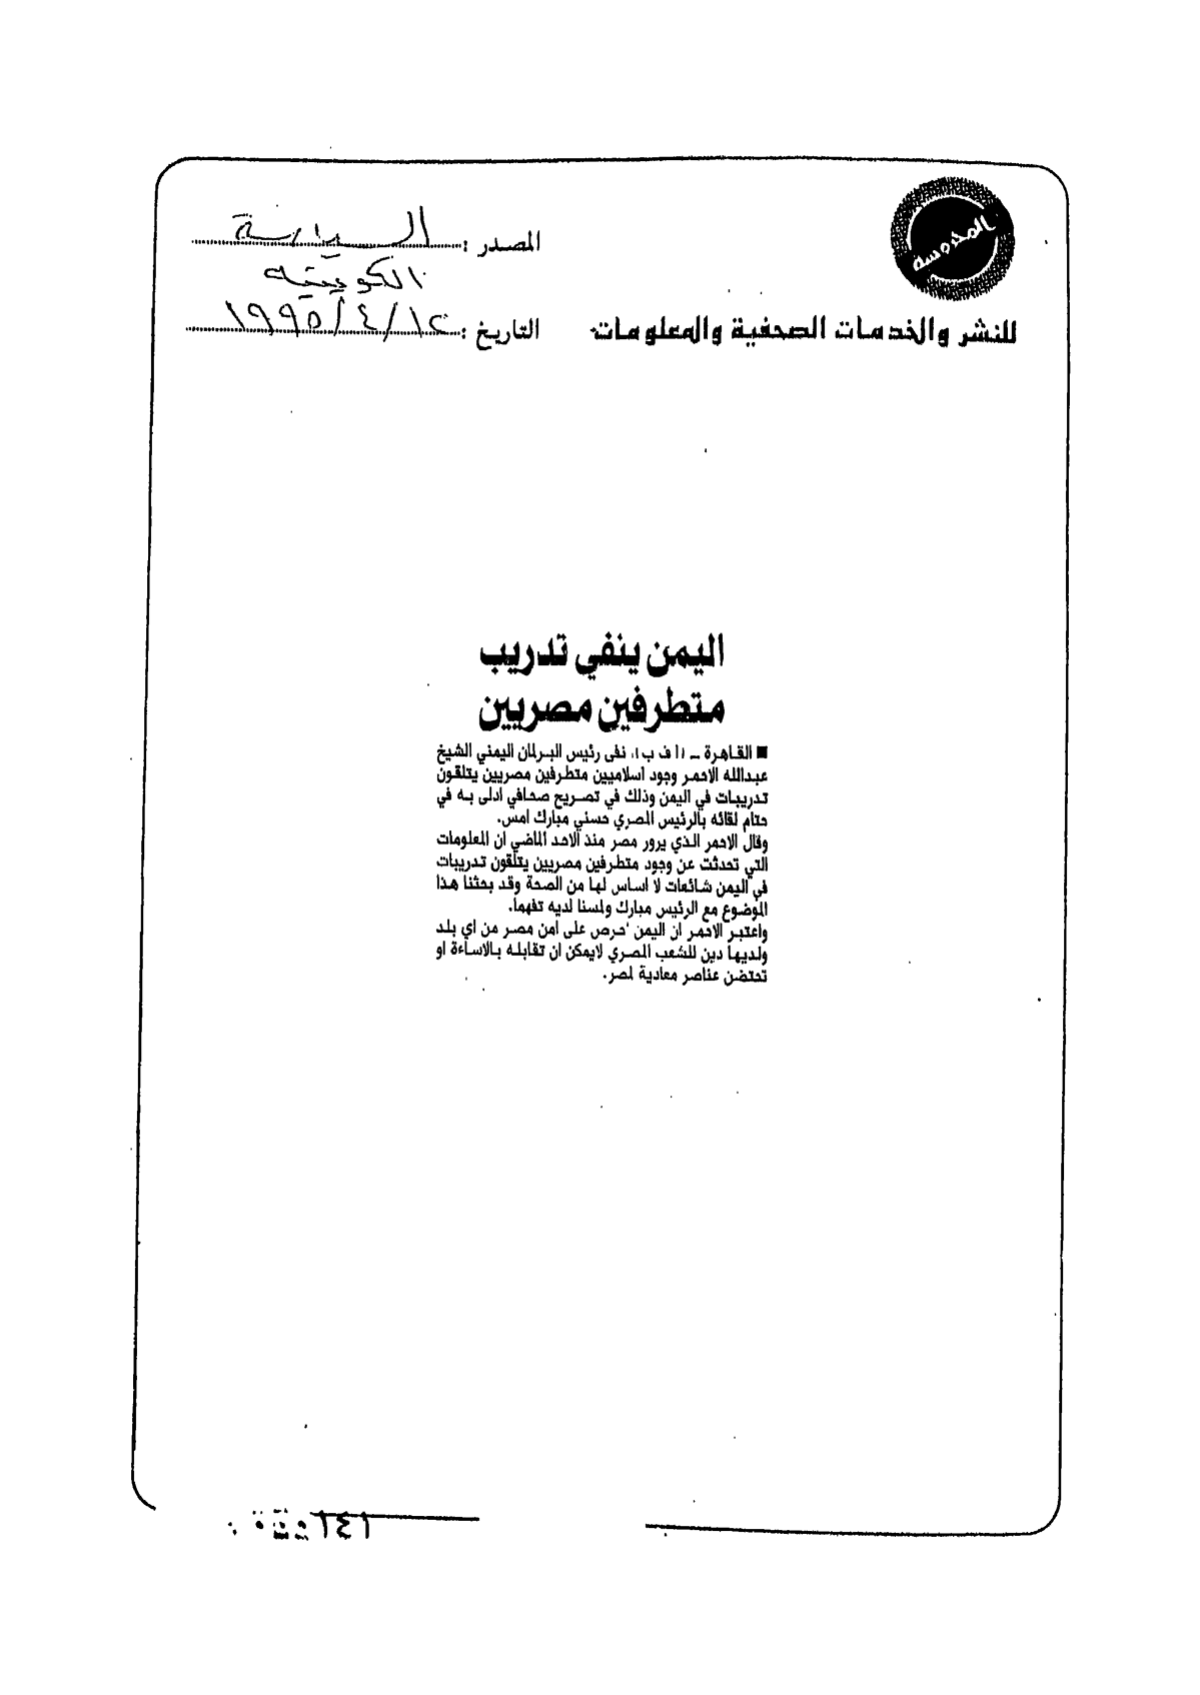 المحروسة
المصدر : السياسة
الكويتيه
للنشر والخدمات الصحفية والمعلومات
التاريخ : ١٢/٤/١٩٩٥
اليمن ينفي تدريب
متطرفين مصريين
■ القاهرة ـ (ا ف ب)، نفى رئيس البرلمان اليمني الشيخ
عبدالله الاحمر وجود اسلاميين متطرفين مصريين يتلقون
تدريبات في اليمن وذلك في تصريح صحافي ادلى به في
ختام لقائه بالرئيس المصري حسني مبارك امس.
وقال الاحمر الذي يزور مصر منذ الاحد الماضي ان المعلومات
التي تحدثت عن وجود متطرفين مصريين يتلقون تدريبات
في اليمن شائعات لا اساس لها من الصحة وقد بحثنا هذا
الموضوع مع الرئيس مبارك ولمسنا لديه تفهما.
واعتبر الاحمر ان اليمن احرص على امن مصر من اي بلد
ولديها دين للشعب المصري لايمكن ان تقابله بالاساءة او
تحتضن عناصر معادية لمصر.